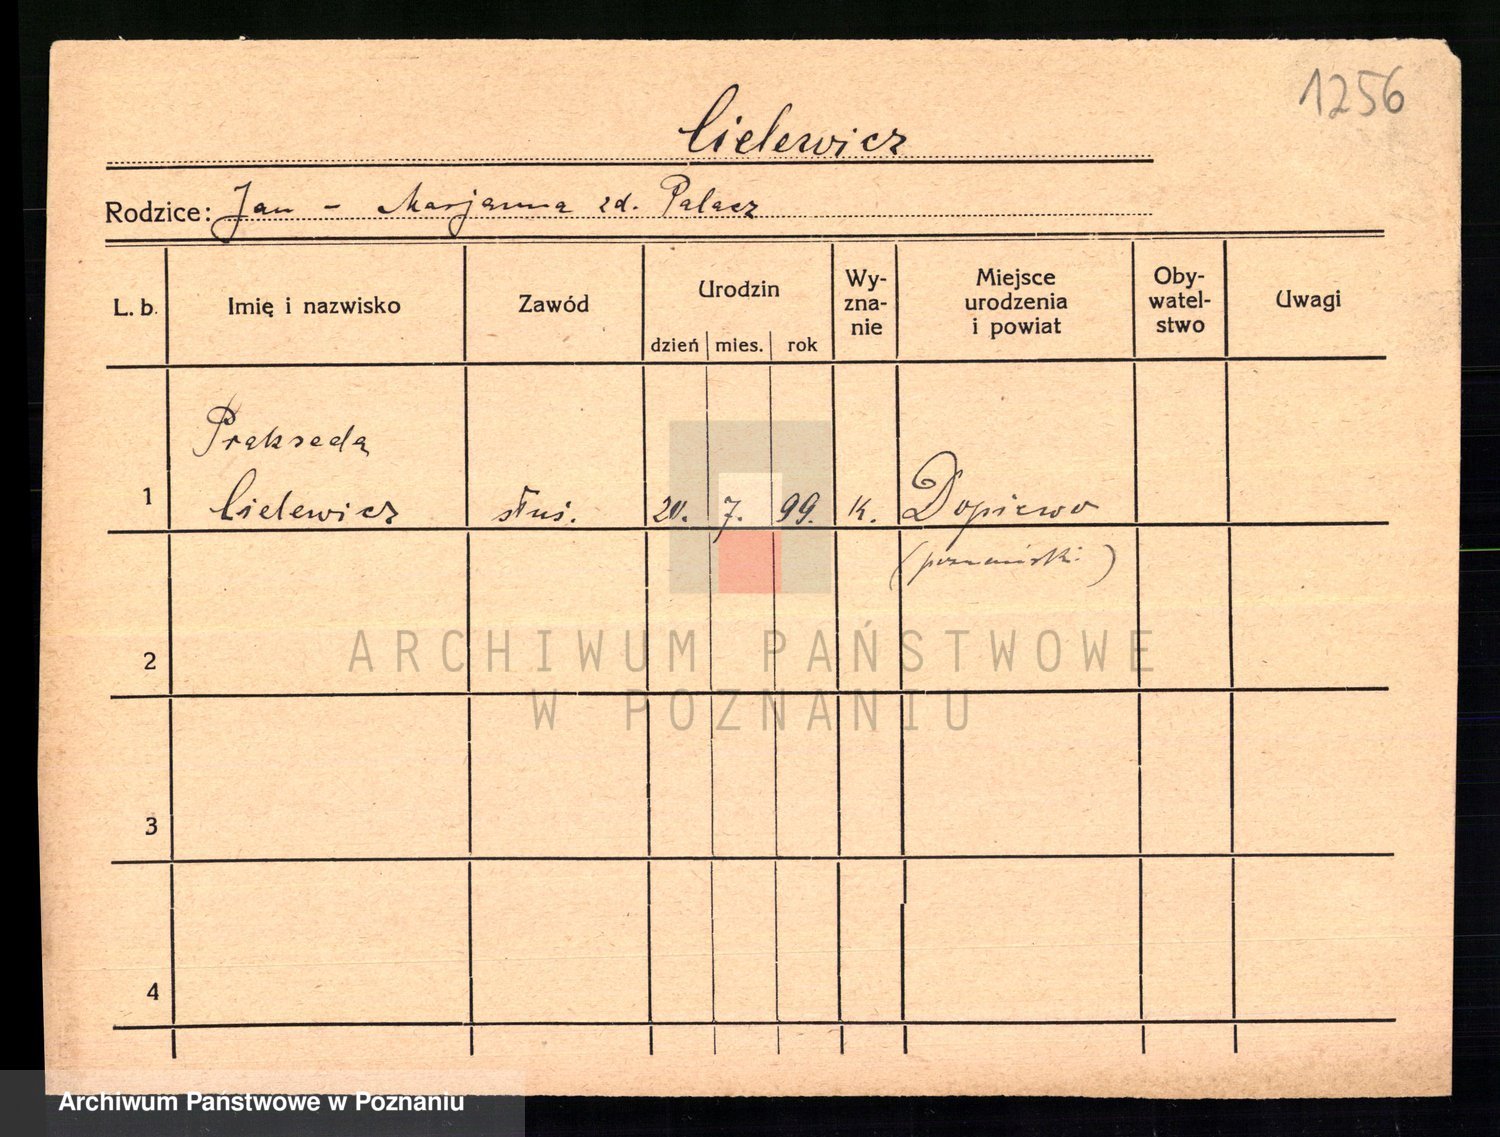 1256
Cielewicz
Rodzice: Jan - Marjanna zd. Palacz
L. b. Imię i nazwisko Zawód Urodzin dzień mies. rok Wy-zna-nie Miejsce urodzenia i powiat Oby-watel-stwo Uwagi
Prakseda
1 Cielewicz służ. 20. 7. 99. k. Dopiewo
(poznański)
2
3
4
ARCHIWUM PAŃSTWOWE
W POZNANIU
Archiwum Państwowe w Poznaniu